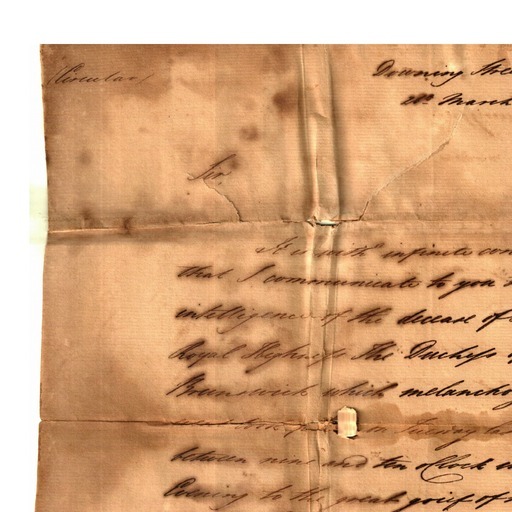 (Circular)
Downing Stre
March
Sir
It is with infinite con
that I communicate to you
intelligence of the decease of
Royal Highness The Duchess
Brunswick which melancho
on Tuesday
between nine and ten oClock
Evening to the great grief of